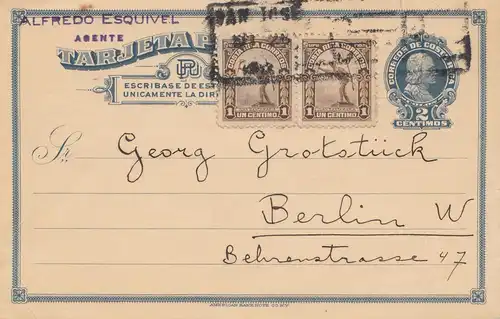 ALFREDO ESQUIVEL
AGENTE
SAN JOSE
TARJETA
ESCRIBASE DE
UNICAMENTE LA DIR
1 UN CENTIMO 1
1 UN CENTIMO 1
CORREOS DE COSTA RICA
2
CENTIMOS
Sr. Georg Grotstück
Berlin W
Behrenstrasse 47
AMERICAN BANK NOTE CO. N.Y.